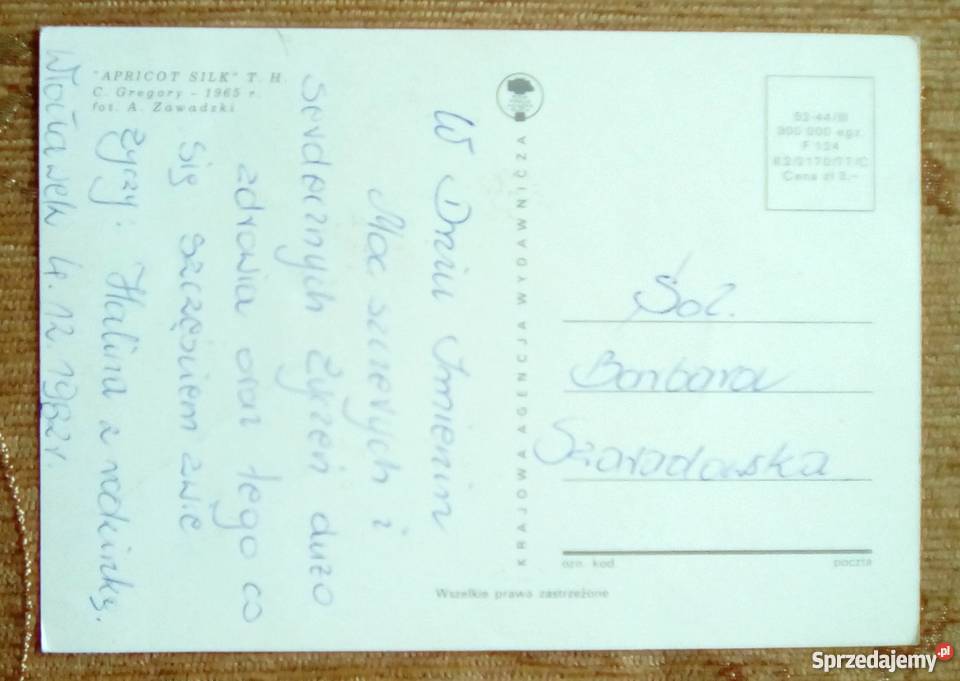 "APRICOT SILK" T. H.
C. Gregory - 1965 r.
fot. A. Zawadzki
W Dniu Imienin
Moc szczerych i
serdecznych życzeń dużo
zdrowia oraz tego co
się szczęściem zwie
życzy: Halina z rodzinką.
Włocławek 4.12.1982r.
KRAJOWA AGENCJA WYDAWNICZA
52-44/III
300 000 egz.
F 124
Cena zł 3,-
Sol.
Barbara
ozn. kod
poczta
Wszelkie prawa zastrzeżone
Sprzedajemy.pl